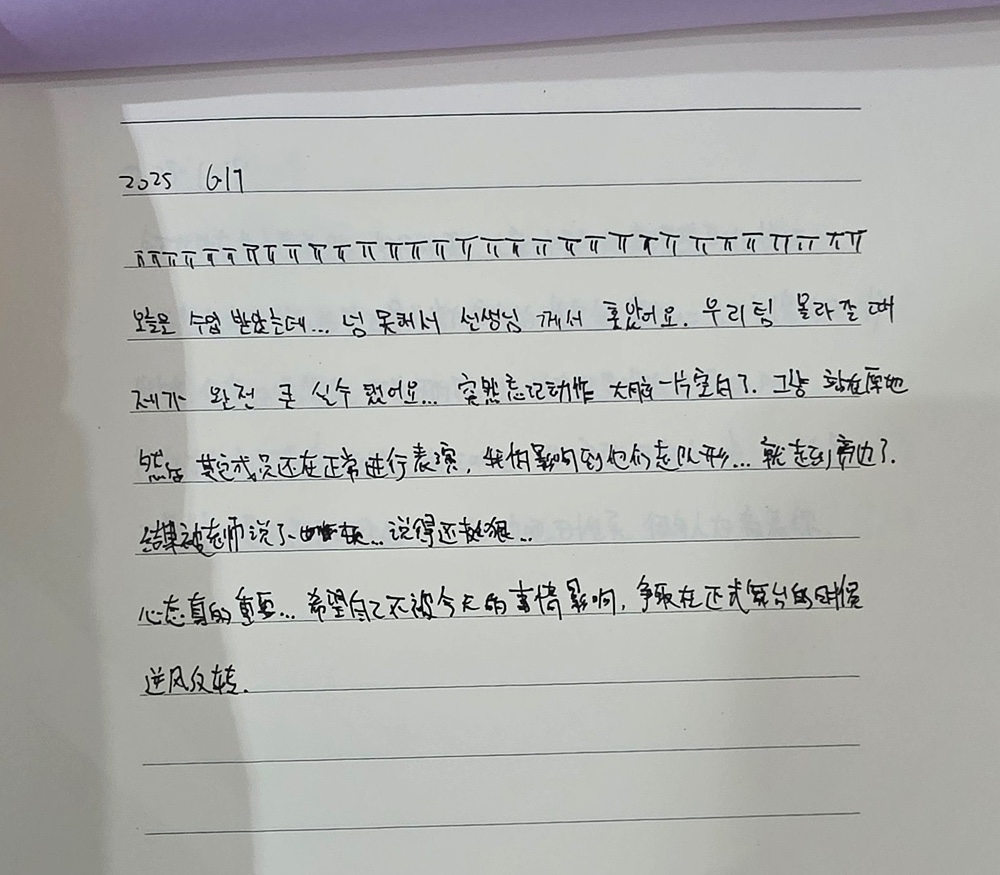 2025 6.17
ㅠㅠㅠㅠㅠㅠㅠㅠㅠㅠㅠㅠㅠㅠㅠㅠㅠㅠㅠㅠㅠㅠㅠㅠㅠㅠㅠㅠㅠㅠㅠㅠ
오늘은 수업 받았는데... 넝 못해서 선생님 께서 혼았어요. 우리팀 올라갈 때
제가 완전 큰 실수 했어요... 突然忘记动作 大脑一片空白了. 그냥 站在原地
然后 其它成员还在正常进行表演, 我怕影响到他们走队形... 就走到旁边了.
结果被老师说了 ... 说得还挺狠...
心态真的重要... 希望自己不被今天的事情影响, 争取在正式舞台的时候
逆风反转.